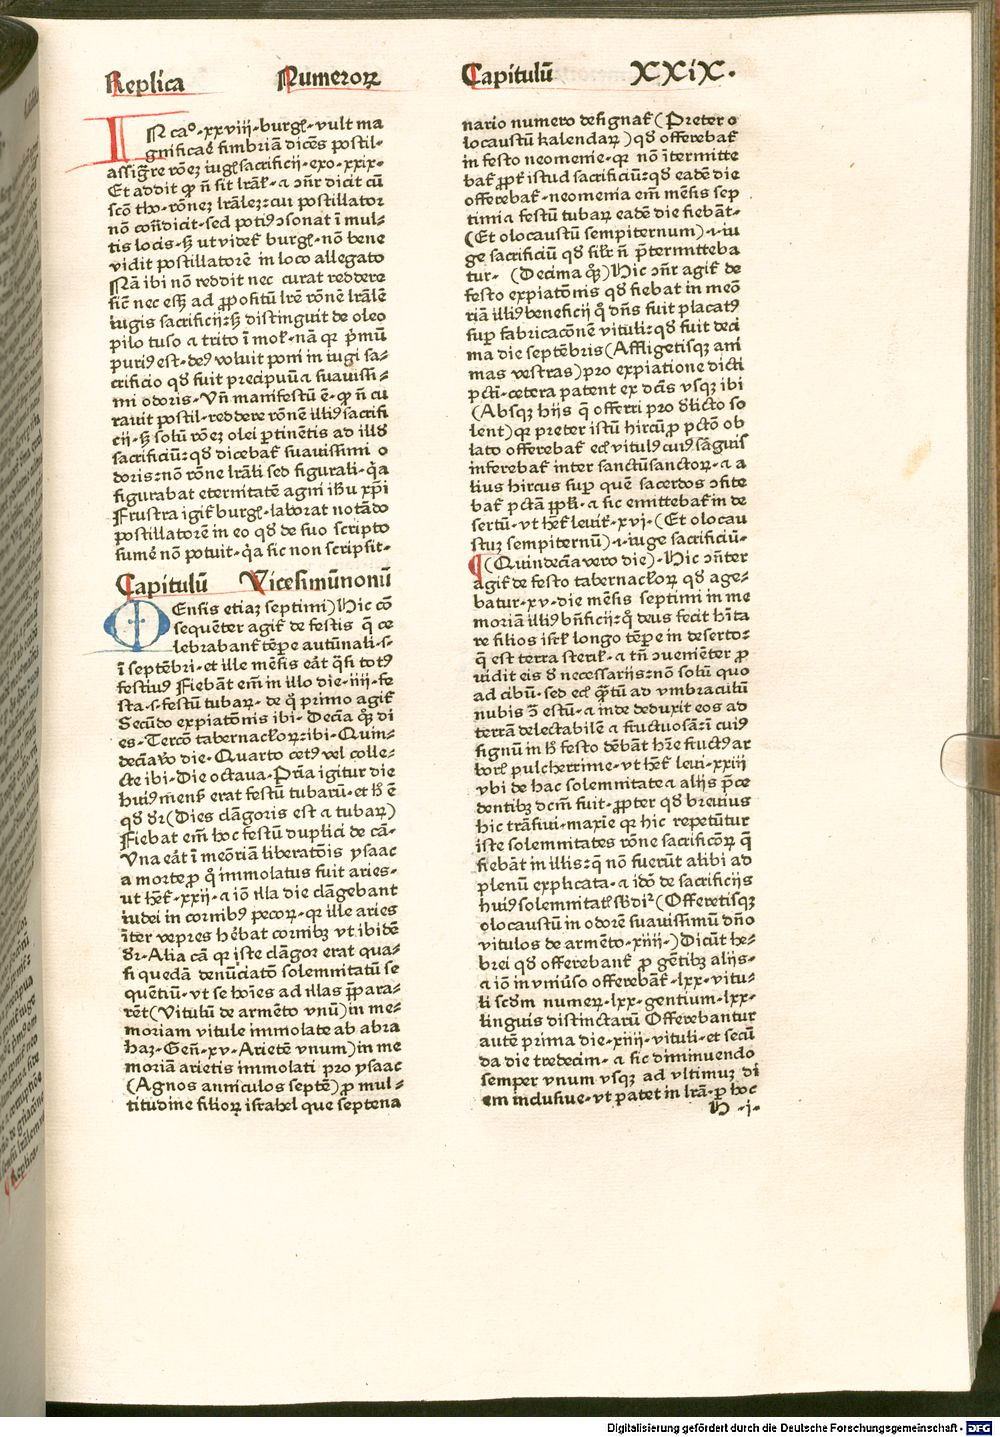 Replica Numeroꝝ
Capitulū XXiX.
IN ca°.xxviij.burgē.vult ma
gnificaē fimbriā dicēs postil.
assigre rōeꝫ iugꝭ sacrificij.exo.xxix.
Et addit ꝙ nō sit lrāl.⁊ a ɔn̄r dicit cū
scō tho.rōneꝫ lrāleꝫ:cui postillator
nō cōdicit.sed potiꝰ ɔsonat ī mul⸗
tis locis.sꝫ ut videt̄ burgē.nō bene
vidit postillatorē in loco allegato
Nā ibi nō reddit nec curat reddere
sic̄ nec eēt ad ꝓpositū lr̄e rōnē lrālē
iugis sacrificij:sꝫ distinguit de oleo
pilo tuso a trito ī mol.nā qꝛ p̄mū
puriꝰ est.deꝰ voluit poni in iugi sa⸗
crificio qð fuit precipuū a suauissi⸗
mi odoris.Vn̄ manifestū ē.ꝙ nō cu
rauit postil.reddere rōnē illiꝰ sacrifi
cij.sꝫ solū rōeꝫ olei ꝑtinētis ad illð
sacrificiū:qð dicebat̄ suauissimi o
doris:nō rōne lrāli sed figurali.q̄a
figurabat eternitatē agni ihū xp̄i
Frustra igit̄ burgē.laborat notādo
postillatorē in eo qð de suo scripto
sumē nō potuit.q̄a sic non scripsit.
Capitulū Vicesimūnonū
MEnsis etiaꝫ septimi)Hic cō
sequēter agit̄ de festis q̄ ce
lebrabant̄ tēpe autūnali.s.
ī septēbri.et ille mēsis eāt q̄si totꝰ
festiuꝰ Fiebāt em̄ in illo die.iiij.fe
sta.s.festū tubaꝝ.de q̄ primo agit̄
Secūdo expiatōnis ibi.Decīa qꝫ di
es.Tercō tabernacl̄oꝝ:ibi.Quin⸗
decīavo die.Quarto cetꝰ vel colle⸗
cte ibi.Die octaua.Prīa igitur die
huiꝰ mens̄ erat festū tubarū.et hꝭ ē
qð dr̄(Dies clāgoris est ⁊ tubaꝝ)
Fiebat em̄ hoc festū duplici de cā.
Vna eāt ī meōriā liberatōis ysaac
a morte ꝓ q̊ immolatus fuit aries.
ut hēt̄.xxij.⁊ iō illa die clāgebant
iudei in cornibꝰ pecoꝝ.qꝛ ille aries
īter vepres hēbat cornibꝫ vt ibidē
dr̄.Alia cā qꝛ iste clāgor erat qua⸗
si quedā denūciatō solemnitatū se
quētiū.vt se hoīes ad illas p̄para⸗
rēt(Vitulū de armēto vnū)in me⸗
moriam vitule immolate ab abra
haꝫ.Gen̄.xv.Arietē vnum)in me
moriā arietis immolati pro ysaac
(Agnos anniculos septē)ꝓ mul⸗
titudine filioꝝ israhel que septena
nario numero designat̄(Preter o
locaustū kalendaꝝ)qð offerebat̄
in festo neomenie.qꝛ nō ītermitte
bat̄ ꝓpt̄ istud sacrificiū:qð eadē die
offerebat̄.neomenia em̄ mēsis sep
timia festū tubaꝝ eadē die fiebāt.
(Et olocaustū sempiternum).i.iu
ge sacrificiū qð silr̄ nō p̄termitteba
tur. (Decima qꝫ)Hic ɔn̄r agit̄ de
festo expiatōnis qð fiebat in meō
riā illiꝰ beneficij q̊ dn̄s fuit placatꝰ
sup fabricacōnē vituli:qð fuit deci
ma die septēbris(Affligetisqꝫ ani
mas vestras)pro expiatione dicti
pcti.cetera patent ex dcīs vsqꝫ ibi
(Absqꝫ hijs q̄ offerri pro dlicto so
lent)qꝛ preter istū hircū ꝓ pctō ob
lato offerebat̄ ecī vitulꝰ cuiꝰ sāguis
inferebat̄ inter sanctūsanctoꝝ.⁊ a
lius hircus sup quē sacerdos ɔfite
bat̄ pctā ppl̄i.⁊ sic emittebat̄ in de
sertū.vt hēt̄ leuit̄.xvj.(Et olocau
stuꝫ sempiternū).i.iuge sacrificiū.
¶(Quindecīa vero die).Hic ɔn̄ter
agit̄ de festo tabernacl̄oꝝ qð age⸗
batur.xv.die mēsis septimi in me
moriā illiꝰ bn̄ficij:q̊ deus fecit hīta
re filios isrl̄ longo tēpe in deserto:
q̄ est terra steril̄.⁊ tn̄ ɔuenieter ꝓ
uidit eis ð necessarijs:nō solū quo
ad cibū.sed ecī q̄tū ad vmbraculū
nubis ɔ̄ estū.⁊ inde deduxit eos ad
terrā delectabilē ⁊ fructuosā:ī cuiꝰ
signū in hꝭ festo dēbāt hr̄e fructꝰ ar
borꝭ pulcherrime.vt hēt̄ leui.xxiij
vbi de hac solemnitate ⁊ alijs p̄ce
dentibꝫ dcm̄ fuit.ꝓpter qð breuius
hic trāsiui.maxīe qꝛ hic repetūtur
iste solemnitates rōne sacrificōꝝ q̄
fiebāt in illis:q̄ nō fuerūt alibi ad
plenū explicata.⁊ idō de sacrificijs
huiꝰ solemnitatꝭ sƀdīꝛ(Offeretisqꝫ
olocaustū in odorē suauissimū dn̄o
vitulos de armēto.xiiij.)Dicūt he⸗
brei qð offerebant̄ ꝓ gētibꝫ alijs.
⁊ iō in vniūso offerebāt̄.lxx.vitu⸗
li scdm̄ numeꝝ.lxx.gentium.lxx.
linguis distinctarū Offerebantur
autē prima die.xiiij.vituli.et secū
da die tredecim.⁊ sic diminuendo
semper vnum vsqꝫ ad vltimuꝫ di
em inclusiue.vt patet in lrā.ꝓ hoc
H .j.
Digitalisierung gefördert durch die Deutsche Forschungsgemeinschaft - DFG